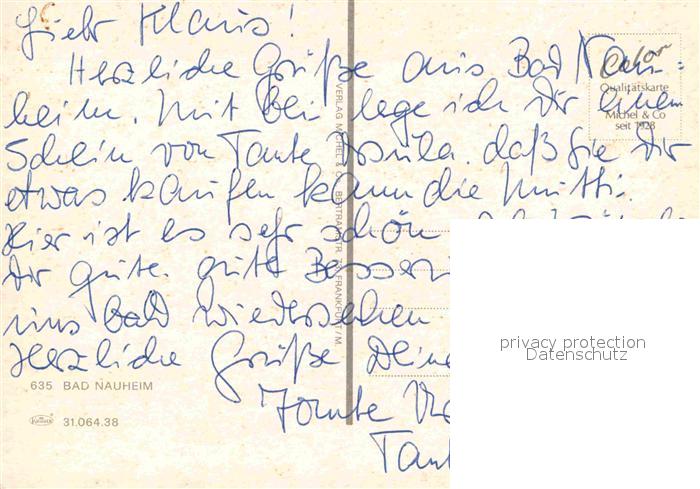 Lieber Klaus!
Herzliche Grüße aus Bad Nau=
heim. Mit bei lege ich Dir einen
Schein von Tante Ursula. daß Sie Dir
etwas kaufen kann die Mutti.
Hier ist es sehr schön
Dir gute. gute Besser
uns bald wiedersehen
Herzliche Grüße Deine
Tante
Tant
Color
Qualitätskarte
Michel & Co
seit 1928
VERLAG MICHEL & CO., BERTRAMSTR. FRANKFURT/M.
privacy protection
Datenschutz
635 BAD NAUHEIM
31.064.38